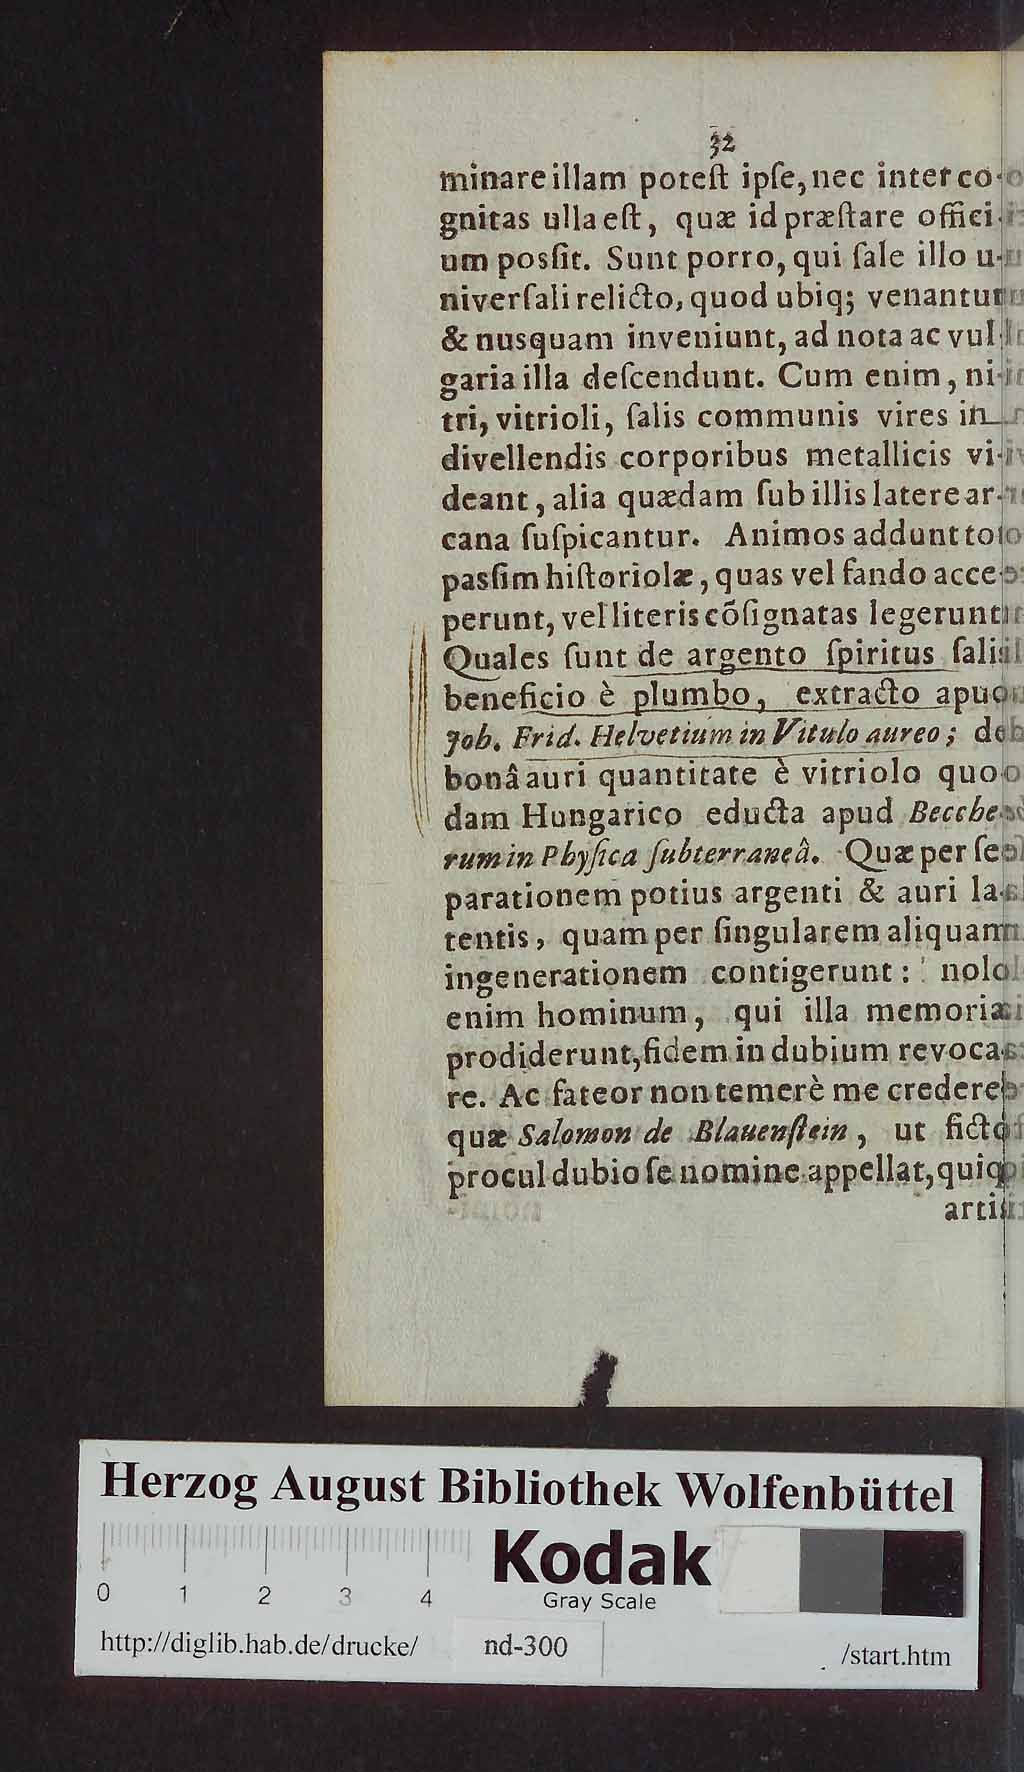 32
minare illam poteſt ipſe, nec inter co-
gnitas ulla eſt, quæ id præſtare offici-
um posſit. Sunt porro, qui ſale illo u-
niverſali relicto, quod ubiq; venantur
& nusquam inveniunt, ad nota ac vul-
garia illa deſcendunt. Cum enim, ni-
tri, vitrioli, ſalis communis vires in
divellendis corporibus metallicis vi-
deant, alia quædam ſub illis latere ar-
cana ſuſpicantur. Animos addunt tot
pasſim hiſtoriolæ, quas vel fando acce-
perunt, vel literis cõſignatas legerunt
Quales ſunt de argento ſpiritus ſalis
beneficio è plumbo, extracto apud
Joh. Frid. Helvetium in Vitulo aureo; de
bonâ auri quantitate è vitriolo quo-
dam Hungarico educta apud Becche-
rum in Phyſica ſubterraneâ. Quæ per ſe-
parationem potius argenti & auri la-
tentis, quam per ſingularem aliquam
ingenerationem contigerunt: nolo
enim hominum, qui illa memoriæ
prodiderunt, fidem in dubium revoca-
re. Ac fateor non temerè me credere
quæ Salomon de Blauenſtein, ut ficto
procul dubio ſe nomine appellat, quiq;
arti
Herzog August Bibliothek Wolfenbüttel
Kodak
Gray Scale
0 1 2 3 4
http://diglib.hab.de/drucke/ nd-300 /start.htm